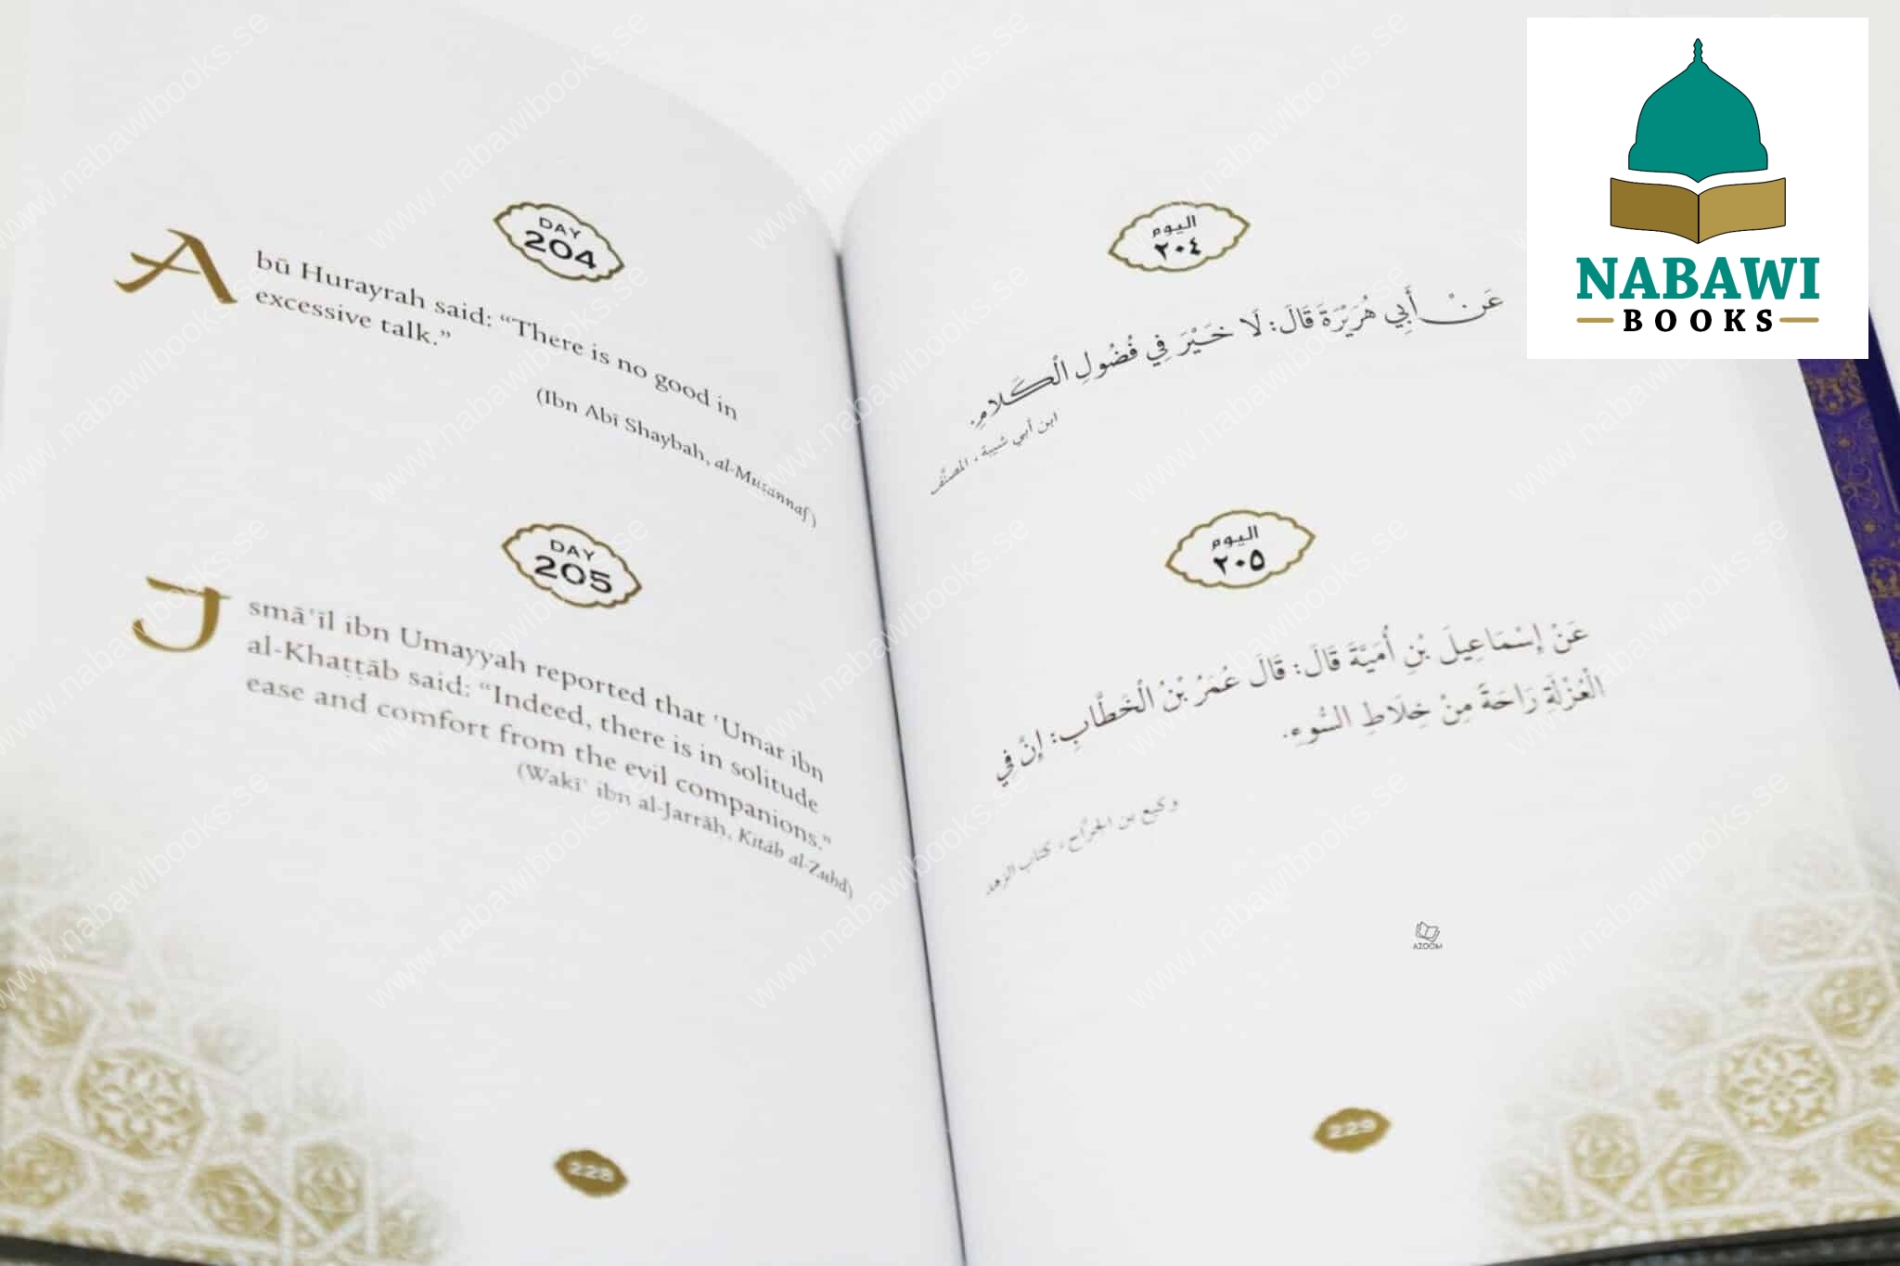 DAY
204
Abū Hurayrah said: “There is no good in
excessive talk.”
(Ibn Abī Shaybah, al-Muṣannaf)
DAY
205
Ismāʿīl ibn Umayyah reported that ʿUmar ibn
al-Khaṭṭāb said: “Indeed, there is in solitude
ease and comfort from the evil companions.”
(Wakīʿ ibn al-Jarrāḥ, Kitāb al-Zuhd)
228
اليوم
٢٠٤
عَنْ أَبِي هُرَيْرَةَ قَالَ: لَا خَيْرَ فِي فُضُولِ الْكَلَامِ.
ابن أبي شيبة ، المصنَّف
اليوم
٢٠٥
عَنْ إِسْمَاعِيلَ بْنِ أُمَيَّةَ قَالَ: قَالَ عُمَرُ بْنُ الْخَطَّابِ: إِنَّ فِي
الْعُزْلَةِ رَاحَةً مِنْ خِلَاطِ السُّوءِ.
وكيع بن الجرَّاح ، كتاب الزهد
AZOOM
229
NABAWI
BOOKS
www.nabawibooks.se